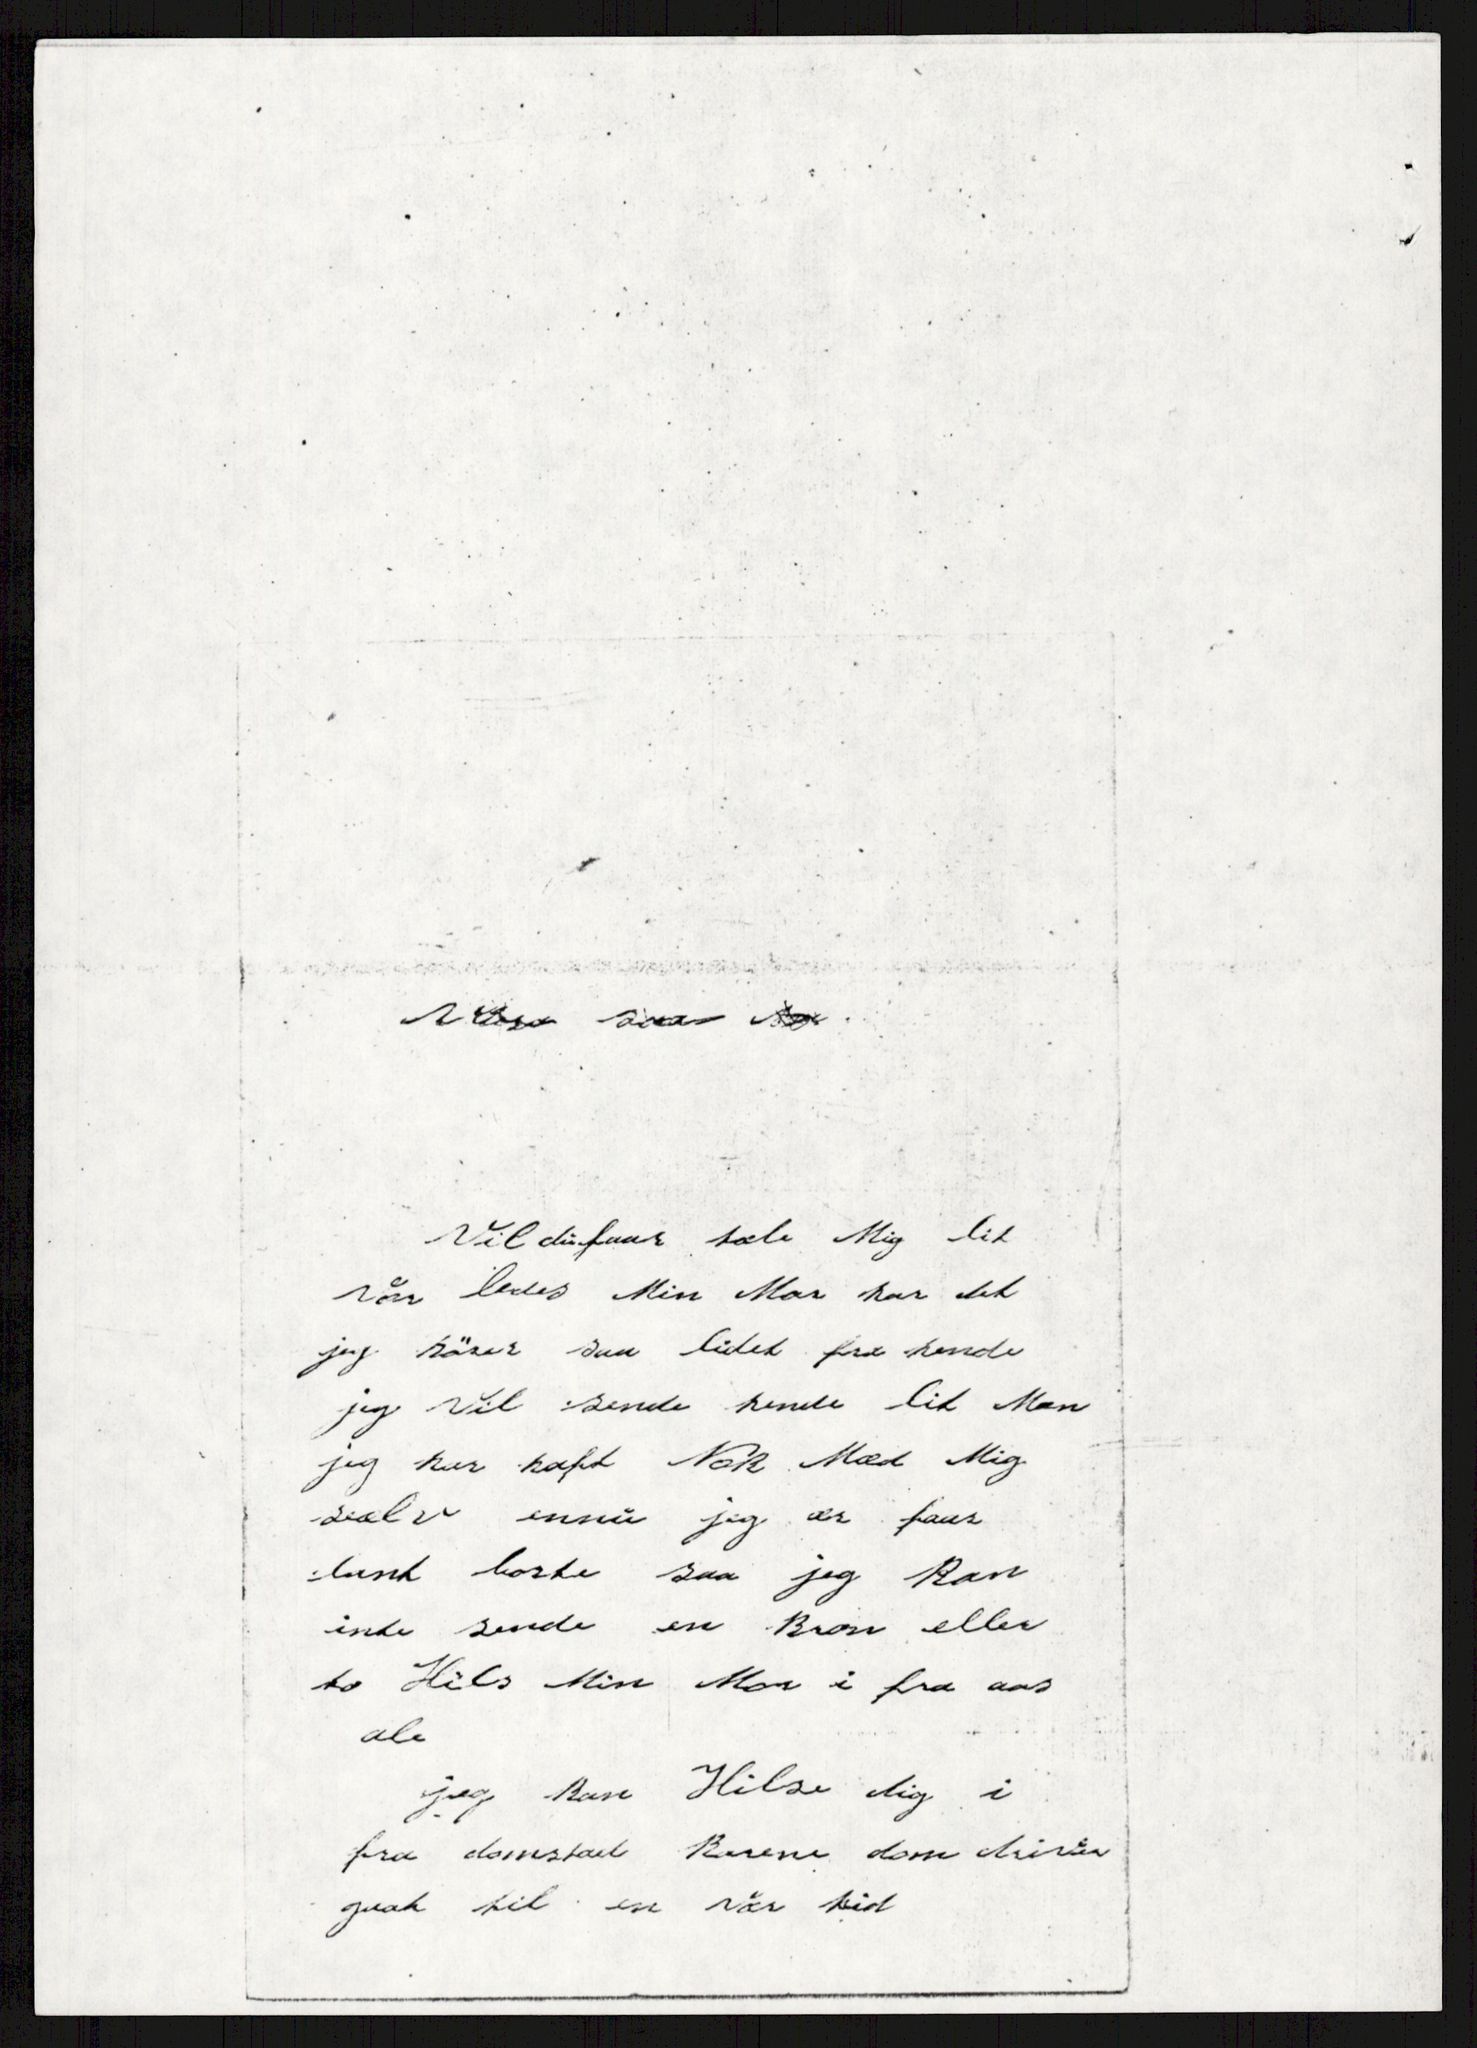 Vil du faar tale Mig lit
vår ledes Min Mor har det
jeg hörer saa lidet fra hende
jeg vil sende hende lit Men
jeg har haft Nok Med Mig
sælv ennu jeg ær faar
lant borte saa jeg kan
inte sende en kron eller
to Hils Min Mor i fra aas
ale
jeg kan Hilse dig i
fra domstad karene dom driver
gaat til en vær tid